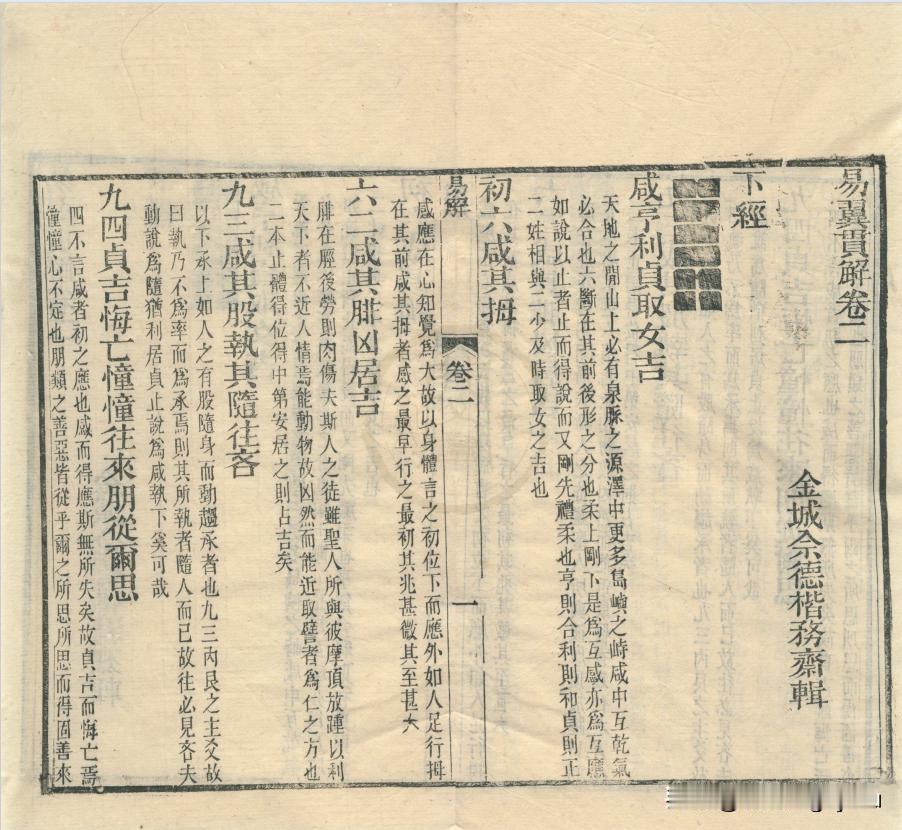 易翼貫解卷二
金城佘德楷務齋輯
下經
咸亨利貞取女吉
天地之閒山上必有泉脈之源澤中更多島嶼之峙咸中互乾氣
必合也六斷在其前後形之分也柔上剛下是為互感亦為互應
如說以止者止而得說而又剛先禮柔也亨則合利則和貞則正
二姓相與二少及時取女之吉也
初六咸其拇
感應在心知覺為大故以身體言之初位下而應外如人足行拇
在其前咸其拇者感之最早行之最初其兆甚微其至甚大
易解
卷二
一
六二咸其腓凶居吉
腓在脛後勞則肉傷夫斯人之徒雖聖人所與彼摩頂放踵以利
天下者不近人情焉能動物故凶然而能近取譬者為仁之方也
二本止體得位得中第安居之則占吉矣
九三咸其股執其隨往吝
以下承上如人之有股隨身而動趨承者也九三內艮之主爻故
曰執乃不為率而為承焉則其所執者隨人而已故往必見吝夫
動說為隨猶利居貞止說為咸執下奚可哉
九四貞吉悔亡憧憧往來朋從爾思
四不言咸者初之應也感而得應斯無所失矣故貞吉而悔亡焉
憧憧心不定也朋類之善惡皆從乎爾之所思所思而得固善來